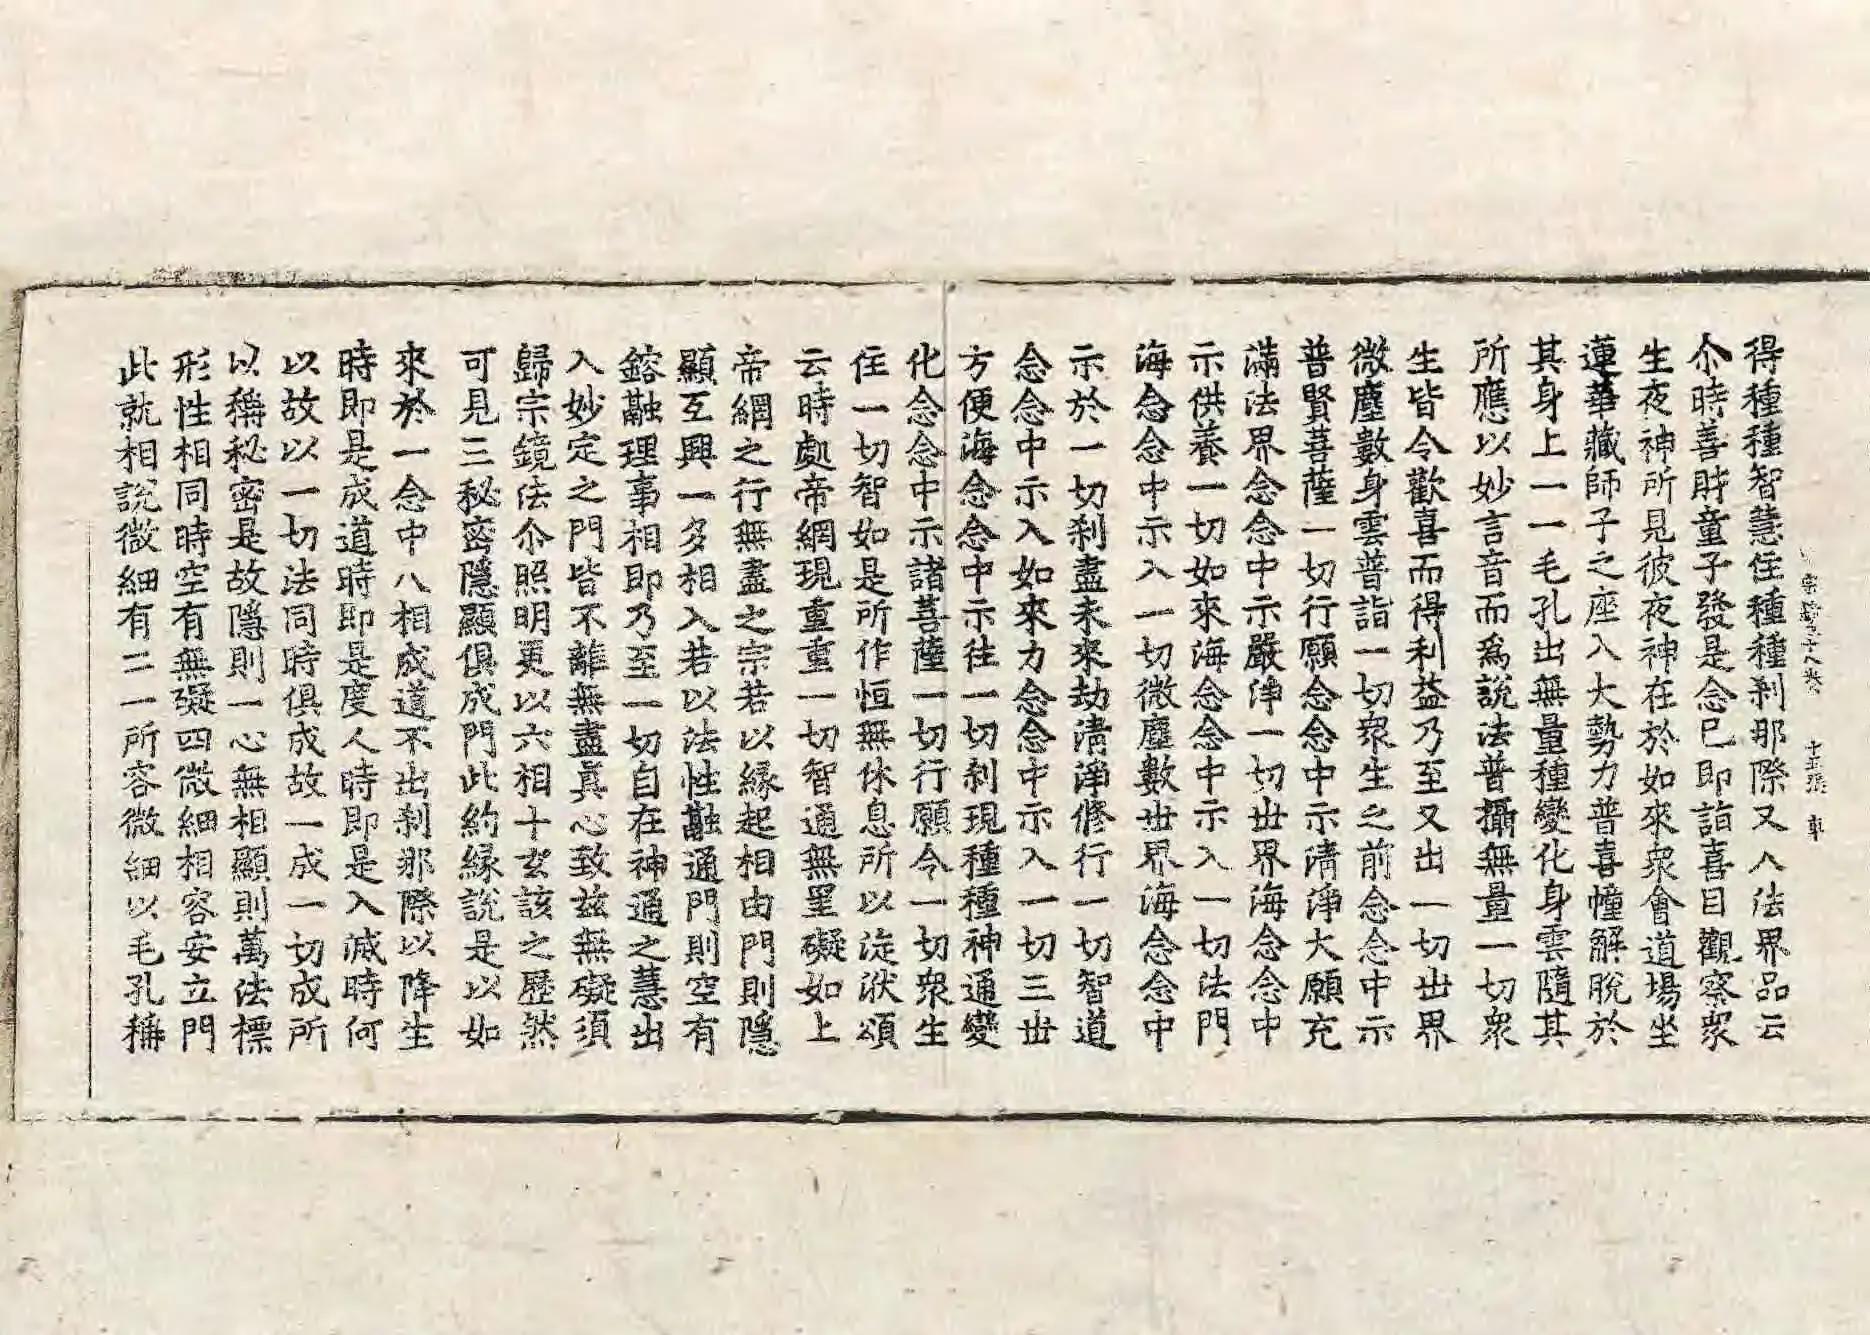 宗鏡三十八卷 十五張 車
得種種智慧住種種刹那際又入法界品云
尒時善財童子發是念已即詣喜目觀察衆
生夜神所見彼夜神在於如來衆會道場坐
蓮華藏師子之座入大勢力普喜幢解脫於
其身上一一毛孔出無量種變化身雲隨其
所應以妙言音而爲說法普攝無量一切衆
生皆令歡喜而得利益乃至又出一切世界
微塵數身雲普詣一切衆生之前念念中示
普賢菩薩一切行願念念中示清淨大願充
滿法界念念中示嚴淨一切世界海念念中
示供養一切如來海念念中示入一切法門
海念念中示入一切微塵數世界海念念中
示於一切刹盡未來劫清淨修行一切智道
念念中示入如來力念念中示入一切三世
方便海念念中示往一切刹現種種神通變
化念念中示諸菩薩一切行願令一切衆生
住一切智如是所作恒無休息所以淀洑頌
云時處帝網現重重一切智通無罣礙如上
帝網之行無盡之宗若以緣起相由門則隱
顯互興一多相入若以法性融通門則空有
鎔融理事相即乃至一切自在神通之慧出
入妙定之門皆不離無盡真心致茲無礙須
歸宗鏡法尒照明更以六相十玄該之歷然
可見三秘密隱顯俱成門此約緣說是以如
來於一念中八相成道不出刹那際以降生
時即是成道時即是度人時即是入滅時何
以故以一切法同時俱成故一成一切成所
以稱秘密是故隱則一心無相顯則萬法標
形性相同時空有無礙四微細相容安立門
此就相說微細有二一所容微細以毛孔稱